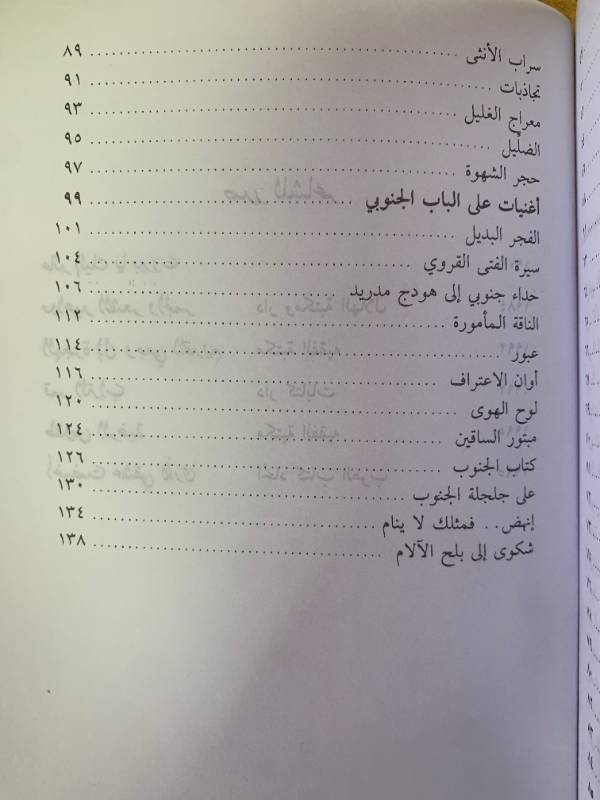 سراب الأنثى ........ ٨٩
تجاذبات ........ ٩١
معراج الغليل ........ ٩٣
الضلّيل ........ ٩٥
حجر الشهوة ........ ٩٧
أغنيات على الباب الجنوبي ........ ٩٩
الفجر البديل ........ ١٠١
سيرة الفتى القروي ........ ١٠٤
حداء جنوبي إلى هودج مدريد ........ ١٠٦
الناقة المأمورة ........ ١١٢
عبور ........ ١١٤
أوان الاعتراف ........ ١١٦
لوح الهوى ........ ١٢٠
مبتور الساقين ........ ١٢٤
كتاب الجنوب ........ ١٢٦
على جلجلة الجنوب ........ ١٣٠
إنهض.. فمثلك لا ينام ........ ١٣٤
شكوى إلى بلح الآلام ........ ١٣٨